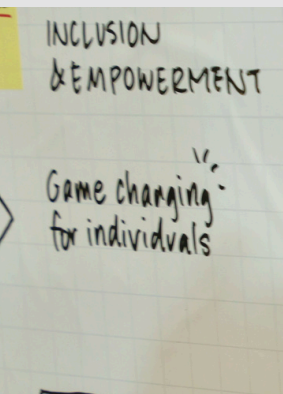 INCLUSION
& EMPOWERMENT
Game changing
for individuals